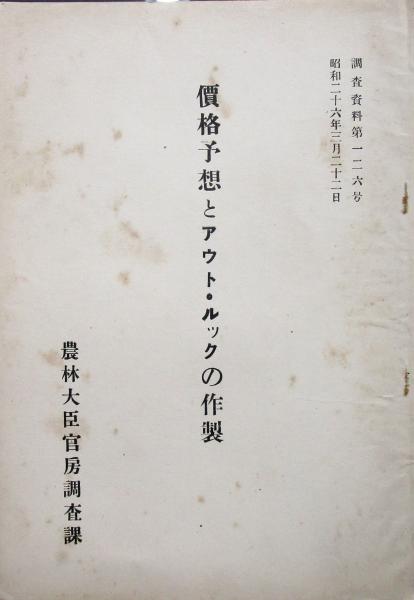 調査資料第一二六号
昭和二十六年三月二十二日
價格予想とアウト・ルックの作製
農林大臣官房調査課